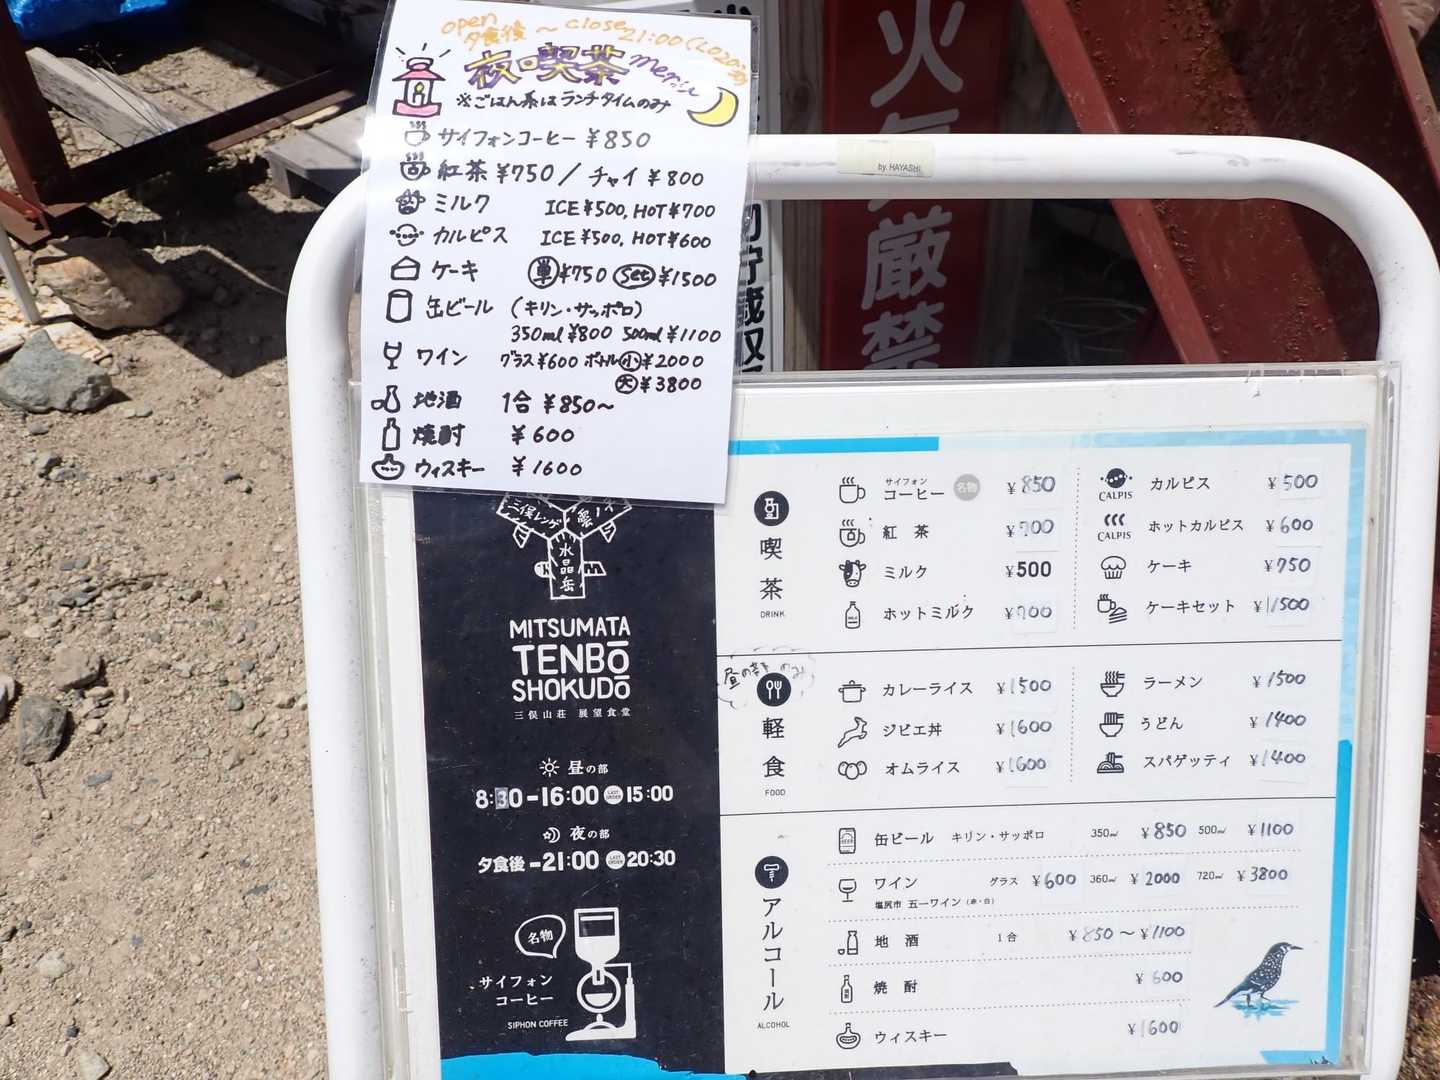 open 夕食後 ～ close 21:00 (LO20:30)
夜喫茶 menu
※ごはん系はランチタイムのみ
サイフォンコーヒー ¥850
紅茶 ¥750 / チャイ ¥800
ミルク ICE¥500, HOT¥700
カルピス ICE¥500, HOT¥600
ケーキ 単¥750 set¥1500
缶ビール (キリン・サッポロ)
350ml ¥800 500ml ¥1100
ワイン グラス¥600 ボトル小¥2000
大¥3800
地酒 1合 ¥850～
焼酎 ¥600
ウィスキー ¥1600
by. HAYASHI
火気厳禁
三俣レンゲ
水晶岳
MITSUMATA
TENBŌ
SHOKUDŌ
三俣山荘 展望食堂
昼の部
8:30-16:00 LAST ORDER 15:00
夜の部
夕食後-21:00 LAST ORDER 20:30
名物
サイフォン
コーヒー
SIPHON COFFEE
喫茶
DRINK
サイフォン
コーヒー 名物 ¥850
紅茶 ¥700
ミルク ¥500
ホットミルク ¥700
CALPIS カルピス ¥500
CALPIS ホットカルピス ¥600
ケーキ ¥750
ケーキセット ¥1500
昼の部のみ
軽食
FOOD
カレーライス ¥1500
ジビエ丼 ¥1600
オムライス ¥1600
ラーメン ¥1500
うどん ¥1400
スパゲッティ ¥1400
アルコール
ALCOHOL
缶ビール キリン・サッポロ 350ml ¥850 500ml ¥1100
ワイン グラス ¥600 360ml ¥2000 720ml ¥3800
塩尻市 五一ワイン (赤・白)
地酒 1合 ¥850～¥1100
焼酎 ¥600
ウィスキー ¥1600